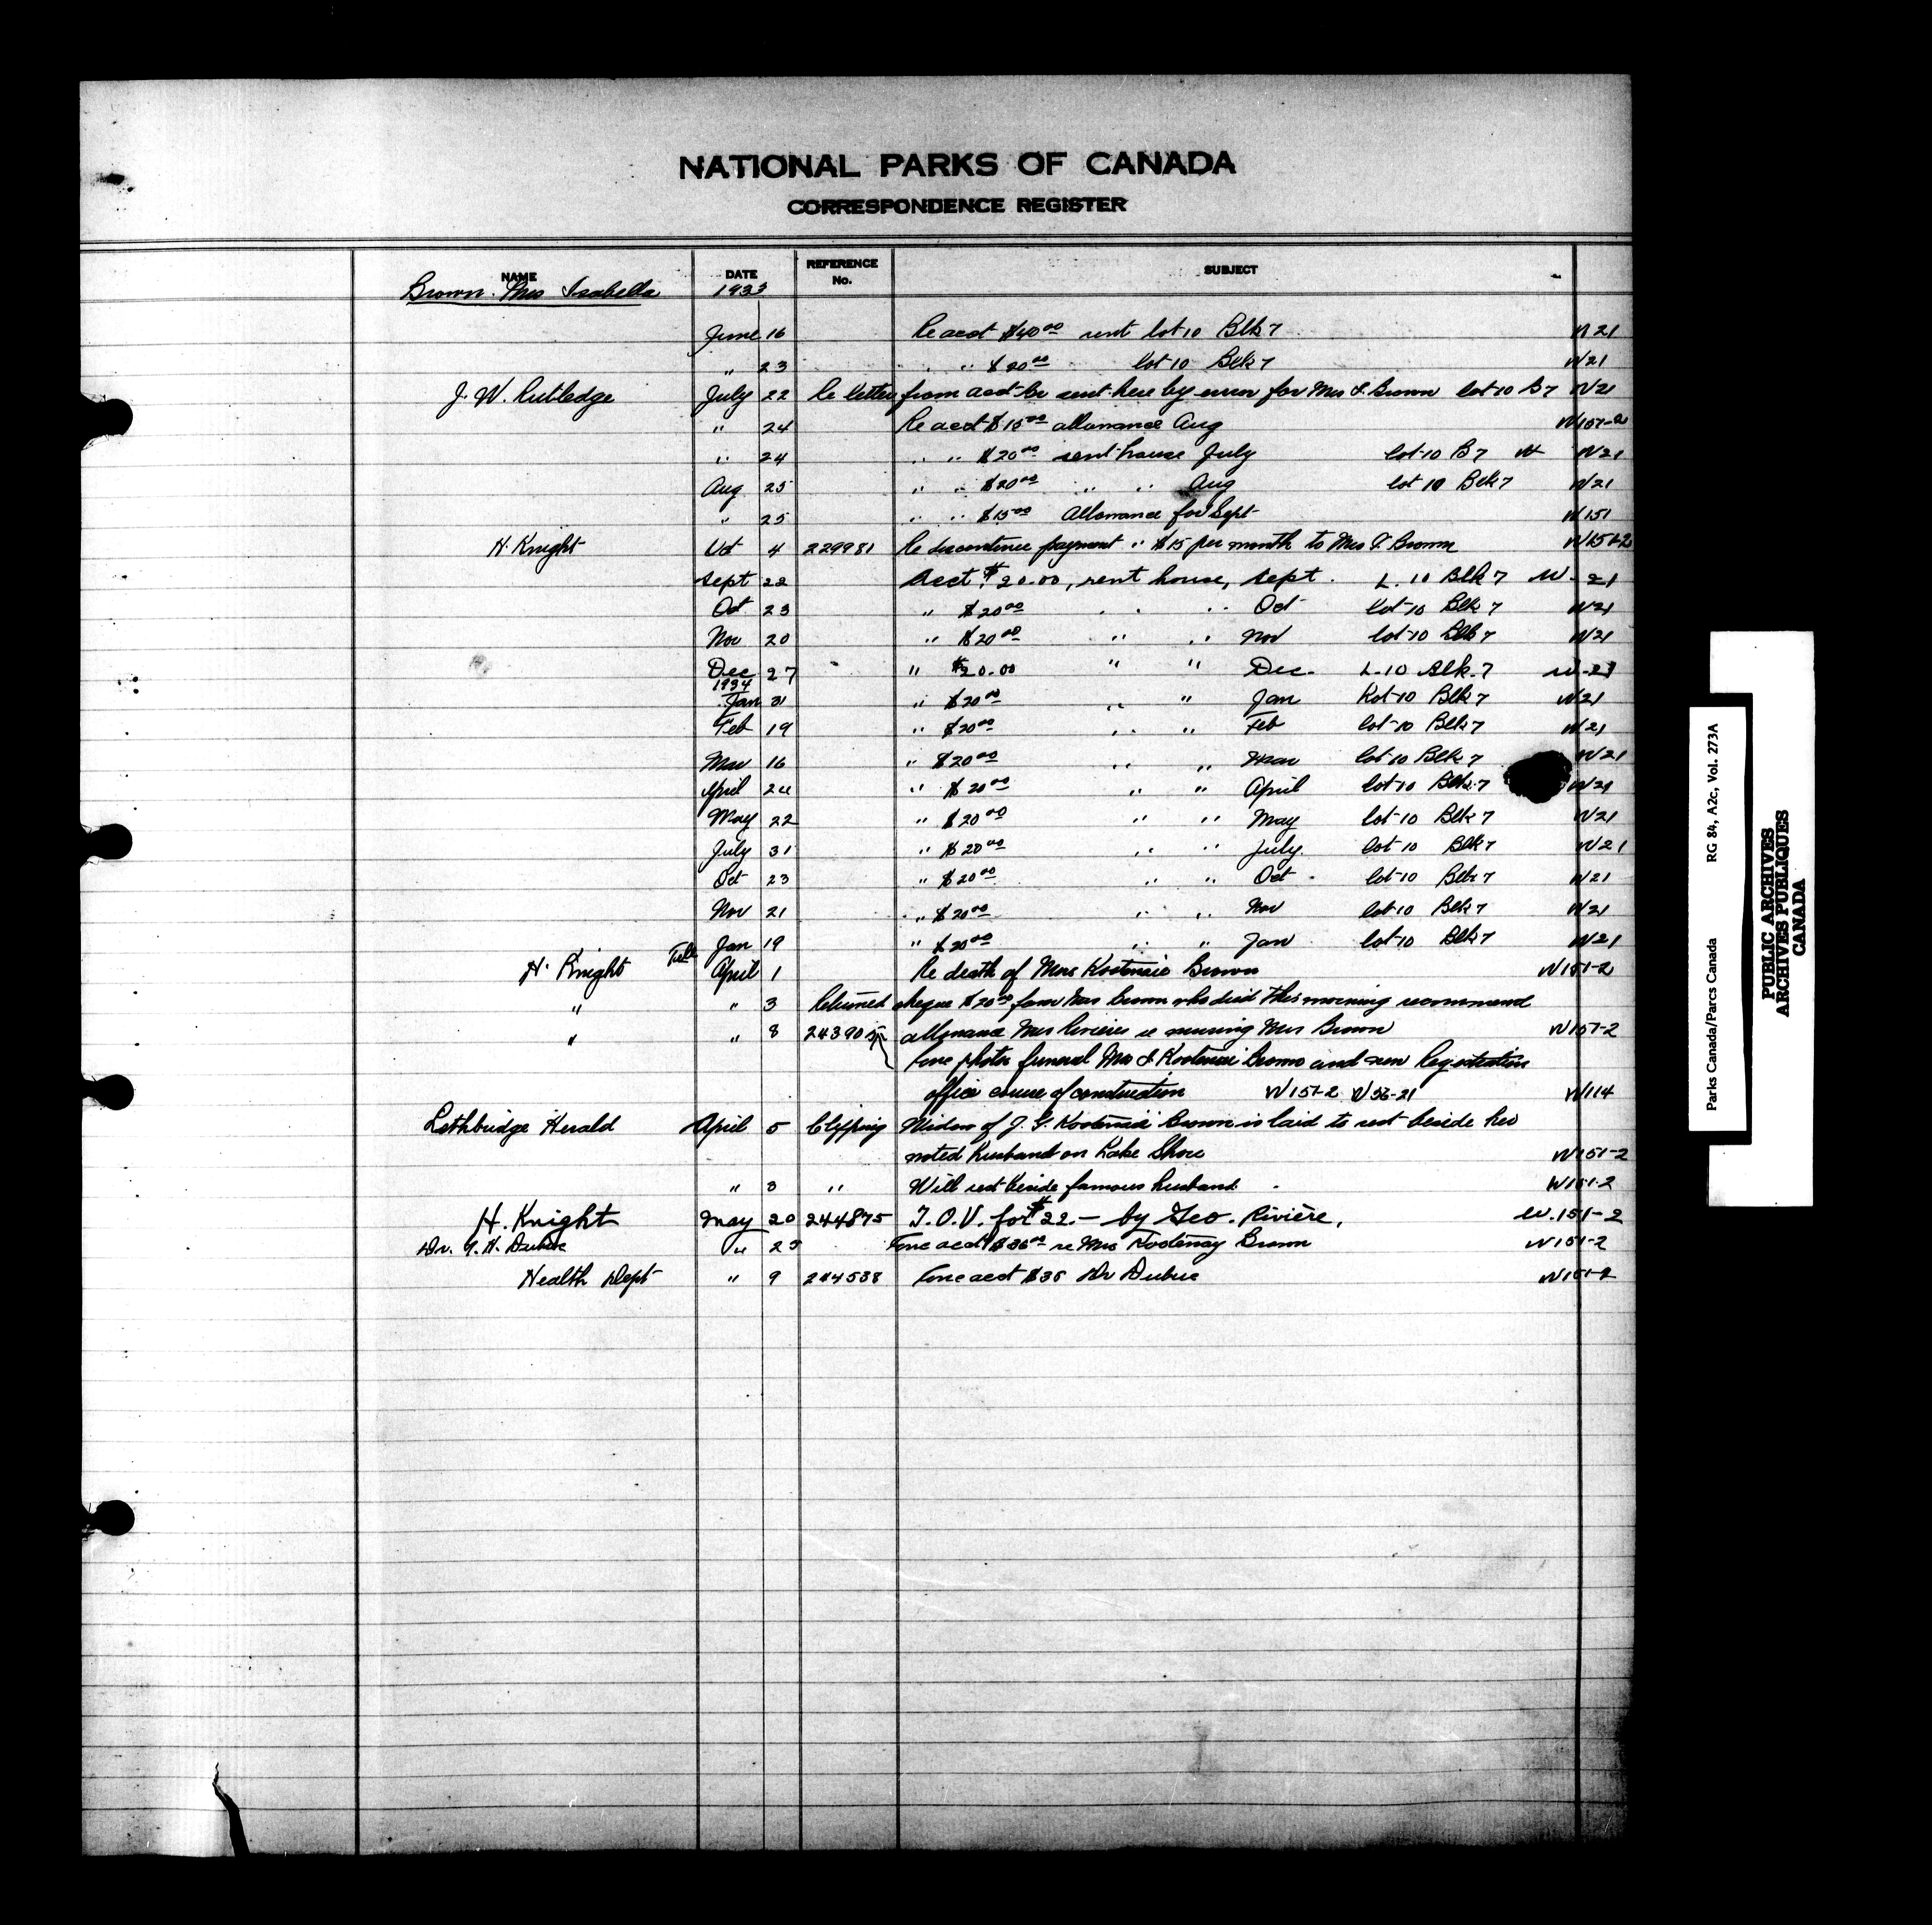 NATIONAL PARKS OF CANADA
CORRESPONDENCE REGISTER
NAME DATE REFERENCE No. SUBJECT
Brown Mrs Isabella 1933
June 16 Re acct $40.00 rent lot 10 Blk 7 W21
" 23 " " $20.00 lot 10 Blk 7 W21
J. W. Rutledge July 22 Re letter from acct Br sent here by error for Mrs I. Brown lot 10 B7 W21
" 24 Re acct $15.00 allowance Aug W151-2
" 24 " " $20.00 rent house July lot 10 B7 W W21
Aug 25 " " $20.00 " " Aug lot 10 Blk 7 W21
" 25 " " $15.00 Allowance for Sept W151
H. Knight Oct 4 229981 Re discontinue payment " $15 per month to Mrs I. Brown W151-2
Sept 22 Acct $20.00, rent house, Sept. L. 10 Blk 7 W-21
Oct 23 " $20.00 " " Oct lot 10 Blk 7 W21
Nov 20 " $20.00 " " Nov lot 10 Blk 7 W21
Dec 27 " $20.00 " " Dec. L-10 Blk. 7 W-21
1934
Jan 31 " $20.00 " " Jan Lot 10 Blk 7 W21
Feb 19 " $20.00 " " Feb lot 10 Blk 7 W21
Mar 16 " $20.00 " " Mar lot 10 Blk 7 W21
April 24 " $20.00 " " April lot 10 Blk 7 W21
May 22 " $20.00 " " May lot 10 Blk 7 W21
July 31 " $20.00 " " July lot 10 Blk 7 W21
Oct 23 " $20.00 " " Oct lot 10 Blk 7 W21
Nov 21 " $20.00 " " Nov lot 10 Blk 7 W21
Jan 19 " $20.00 " " Jan lot 10 Blk 7 W21
H. Knight Tele April 1 Re death of Mrs Kootenaie Brown W151-2
" " 3 Returned cheque $20.00 favor Mrs Brown who died this morning recommend
" " 8 243905 allowance Mrs Rivieres re nursing Mrs Brown W151-2
photos funeral Mrs I Kootenaie Brown and new Registration
office course of construction W151-2 W56-21 W114
Lethbridge Herald April 5 Clipping Widow of J. G. Kootenaie Brown is laid to rest beside her
noted husband on Lake Shore W151-2
" 3 " Will rest beside famous husband W151-2
H. Knight May 20 244875 T.O.V. for $22.- by Geo. Rivière, W.151-2
Dr. Dubuc " 23 acct $36.00 re Mrs Kootenay Brown W151-2
Health Dept " 9 244538 acct $35 Dr Dubuc W151-2
Parks Canada/Parcs Canada RG 84, A2c, Vol. 273A
PUBLIC ARCHIVES
ARCHIVES PUBLIQUES
CANADA